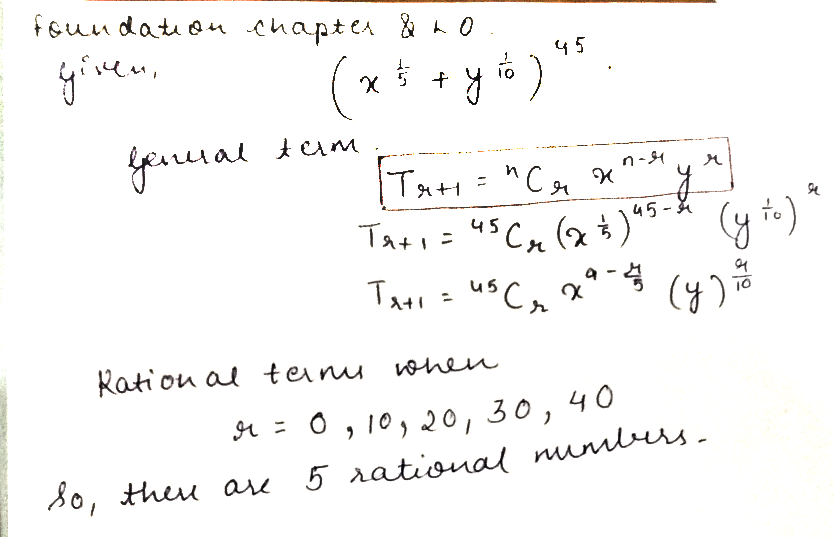 foundation chapter & L O
given, (x^{1/5} + y^{1/10})^{45}.
general term.
T_{r+1} = ^nC_r x^{n-r} y^r
T_{r+1} = ^{45}C_r (x^{1/5})^{45-r} (y^{1/10})^r
T_{r+1} = ^{45}C_r x^{9-r/5} (y)^{r/10}
Rational terms when
r = 0, 10, 20, 30, 40
So, there are 5 rational numbers.